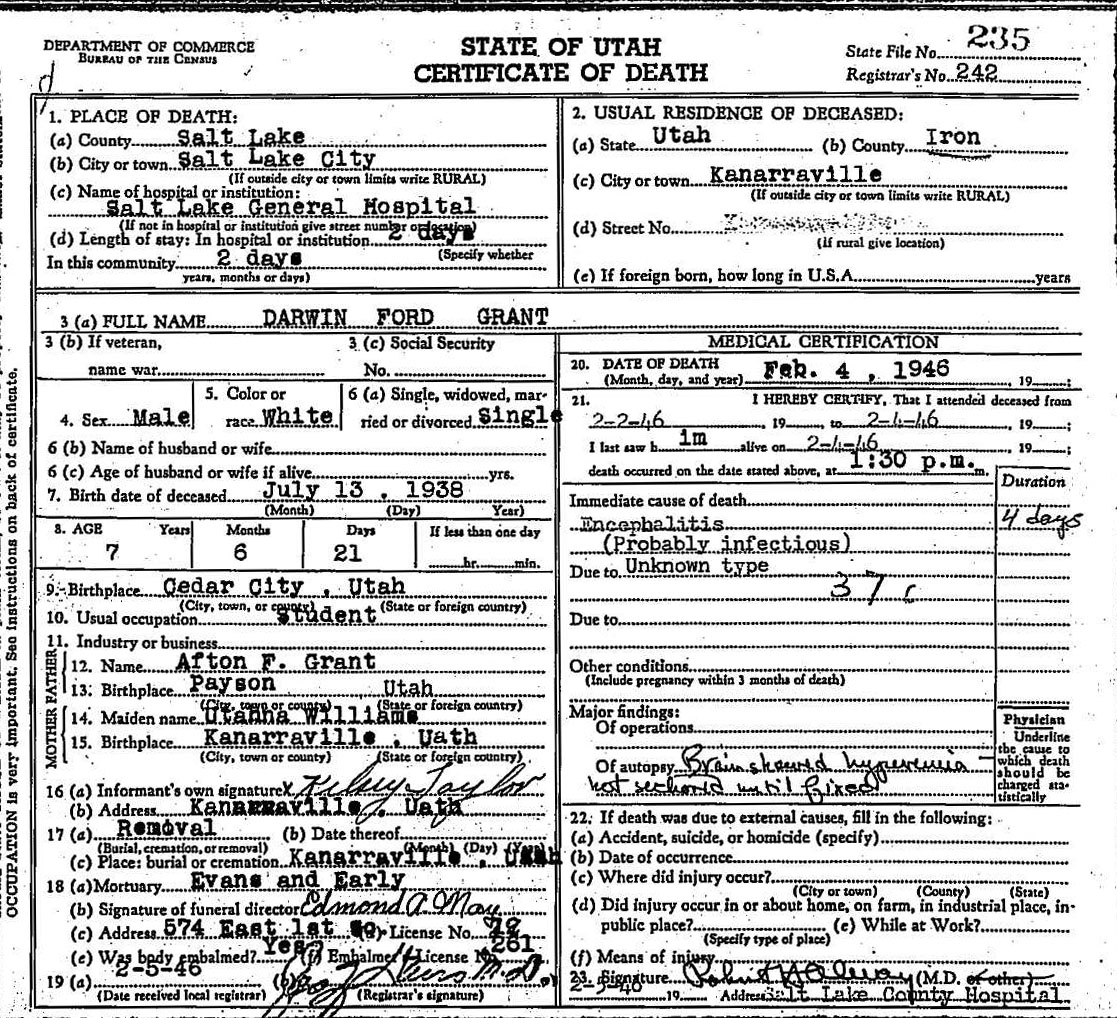 DEPARTMENT OF COMMERCE
BUREAU OF THE CENSUS
STATE OF UTAH
CERTIFICATE OF DEATH
State File No. 235
Registrar's No. 242
1. PLACE OF DEATH:
(a) County Salt Lake
(b) City or town Salt Lake City
(If outside city or town limits write RURAL)
(c) Name of hospital or institution:
Salt Lake General Hospital
(If not in hospital or institution give street number or location)
(d) Length of stay: In hospital or institution 2 days
(Specify whether
In this community 2 days
years, months or days)
2. USUAL RESIDENCE OF DECEASED:
(a) State Utah (b) County Iron
(c) City or town Kanarraville
(If outside city or town limits write RURAL)
(d) Street No.
(If rural give location)
(e) If foreign born, how long in U.S.A. years
3 (a) FULL NAME DARWIN FORD GRANT
3 (b) If veteran,
name war
3 (c) Social Security
No.
4. Sex Male
5. Color or
race White
6 (a) Single, widowed, mar-
ried or divorced Single
6 (b) Name of husband or wife
6 (c) Age of husband or wife if alive yrs.
7. Birth date of deceased July 13, 1938
(Month) (Day) Year)
8. AGE Years Months Days If less than one day
7 6 21 hr. min.
9. Birthplace Cedar City, Utah
(City, town, or county) (State or foreign country)
10. Usual occupation student
11. Industry or business
FATHER
12. Name Afton F. Grant
13. Birthplace Payson, Utah
(City, town or county) (State or foreign country)
MOTHER
14. Maiden name Utahna Williams
15. Birthplace Kanarraville, Uath
(City, town or county) (State or foreign country)
16 (a) Informant's own signature x Kelsey Taylor
(b) Address Kanarraville, Uath
17 (a) Removal (b) Date thereof
(Burial, cremation, or removal) (Month) (Day) (Year)
(c) Place: burial or cremation Kanarraville, Utah
18 (a) Mortuary Evans and Early
(b) Signature of funeral director Edmond A. May
(c) Address 574 East 1st So. (d) License No. 72
(e) Was body embalmed? Yes (f) Embalmer License No. 261
19 (a) 2-5-46 (b) M.D.
(Date received local registrar) (Registrar's signature)
MEDICAL CERTIFICATION
20. DATE OF DEATH
(Month, day, and year) Feb. 4, 1946, 19 ;
21. I HEREBY CERTIFY, That I attended deceased from
2-2-46, 19 , to 2-4-46, 19 ;
I last saw h im alive on 2-4-46, 19 ;
death occurred on the date stated above, at 1:30 p.m. m.
Duration
Immediate cause of death
Encephalitis 4 days
(Probably infectious)
Due to Unknown type
37
Due to
Other conditions
(Include pregnancy within 3 months of death)
Major findings:
Of operations
Of autopsy Brain showed hyperemia -
not sectioned until fixed
Physician
Underline
the cause to
which death
should be
charged sta-
tistically
22. If death was due to external causes, fill in the following:
(a) Accident, suicide, or homicide (specify)
(b) Date of occurrence
(c) Where did injury occur?
(City or town) (County) (State)
(d) Did injury occur in or about home, on farm, in industrial place, in-
public place? (e) While at Work?
(Specify type of place)
(f) Means of injury
23. Signature (M.D. or other)
19 Address Salt Lake County Hospital
OCCUPATION is very important. See instructions on back of certificate.